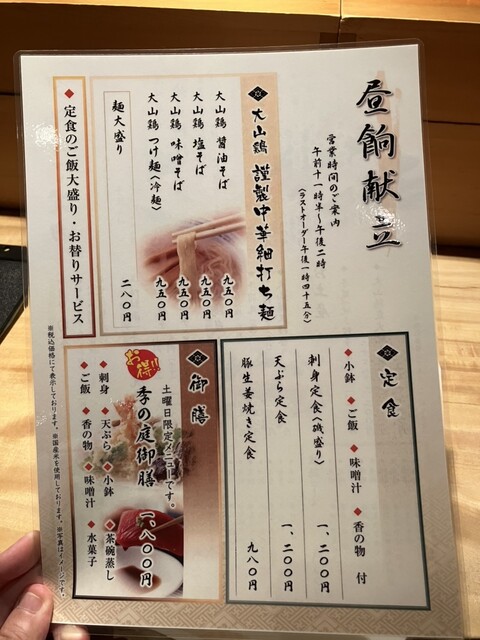 昼餉献立
営業時間のご案内
午前十一時半～午後二時
(ラストオーダー午後一時四十五分)
大山鶏 謹製中華細打ち麺
大山鶏 醤油そば 九五〇円
大山鶏 塩そば 九五〇円
大山鶏 味噌そば 九五〇円
大山鶏 つけ麺(冷麺) 九五〇円
麺大盛り 二八〇円
◆定食のご飯大盛り・お替りサービス
定食
◆小鉢 ◆ご飯 ◆味噌汁 ◆香の物 付
刺身定食(磯盛り) 一、二〇〇円
天ぷら定食 一、二〇〇円
豚生姜焼き定食 九八〇円
御膳
お得!!
土曜日限定メニューです。
季の庭御膳 一、八〇〇円
◆刺身 ◆天ぷら ◆小鉢 ◆茶碗蒸し
◆ご飯 ◆香の物 ◆味噌汁 ◆水菓子
※税込価格にて表示しております。※国産米を使用しております。※写真はイメージです。